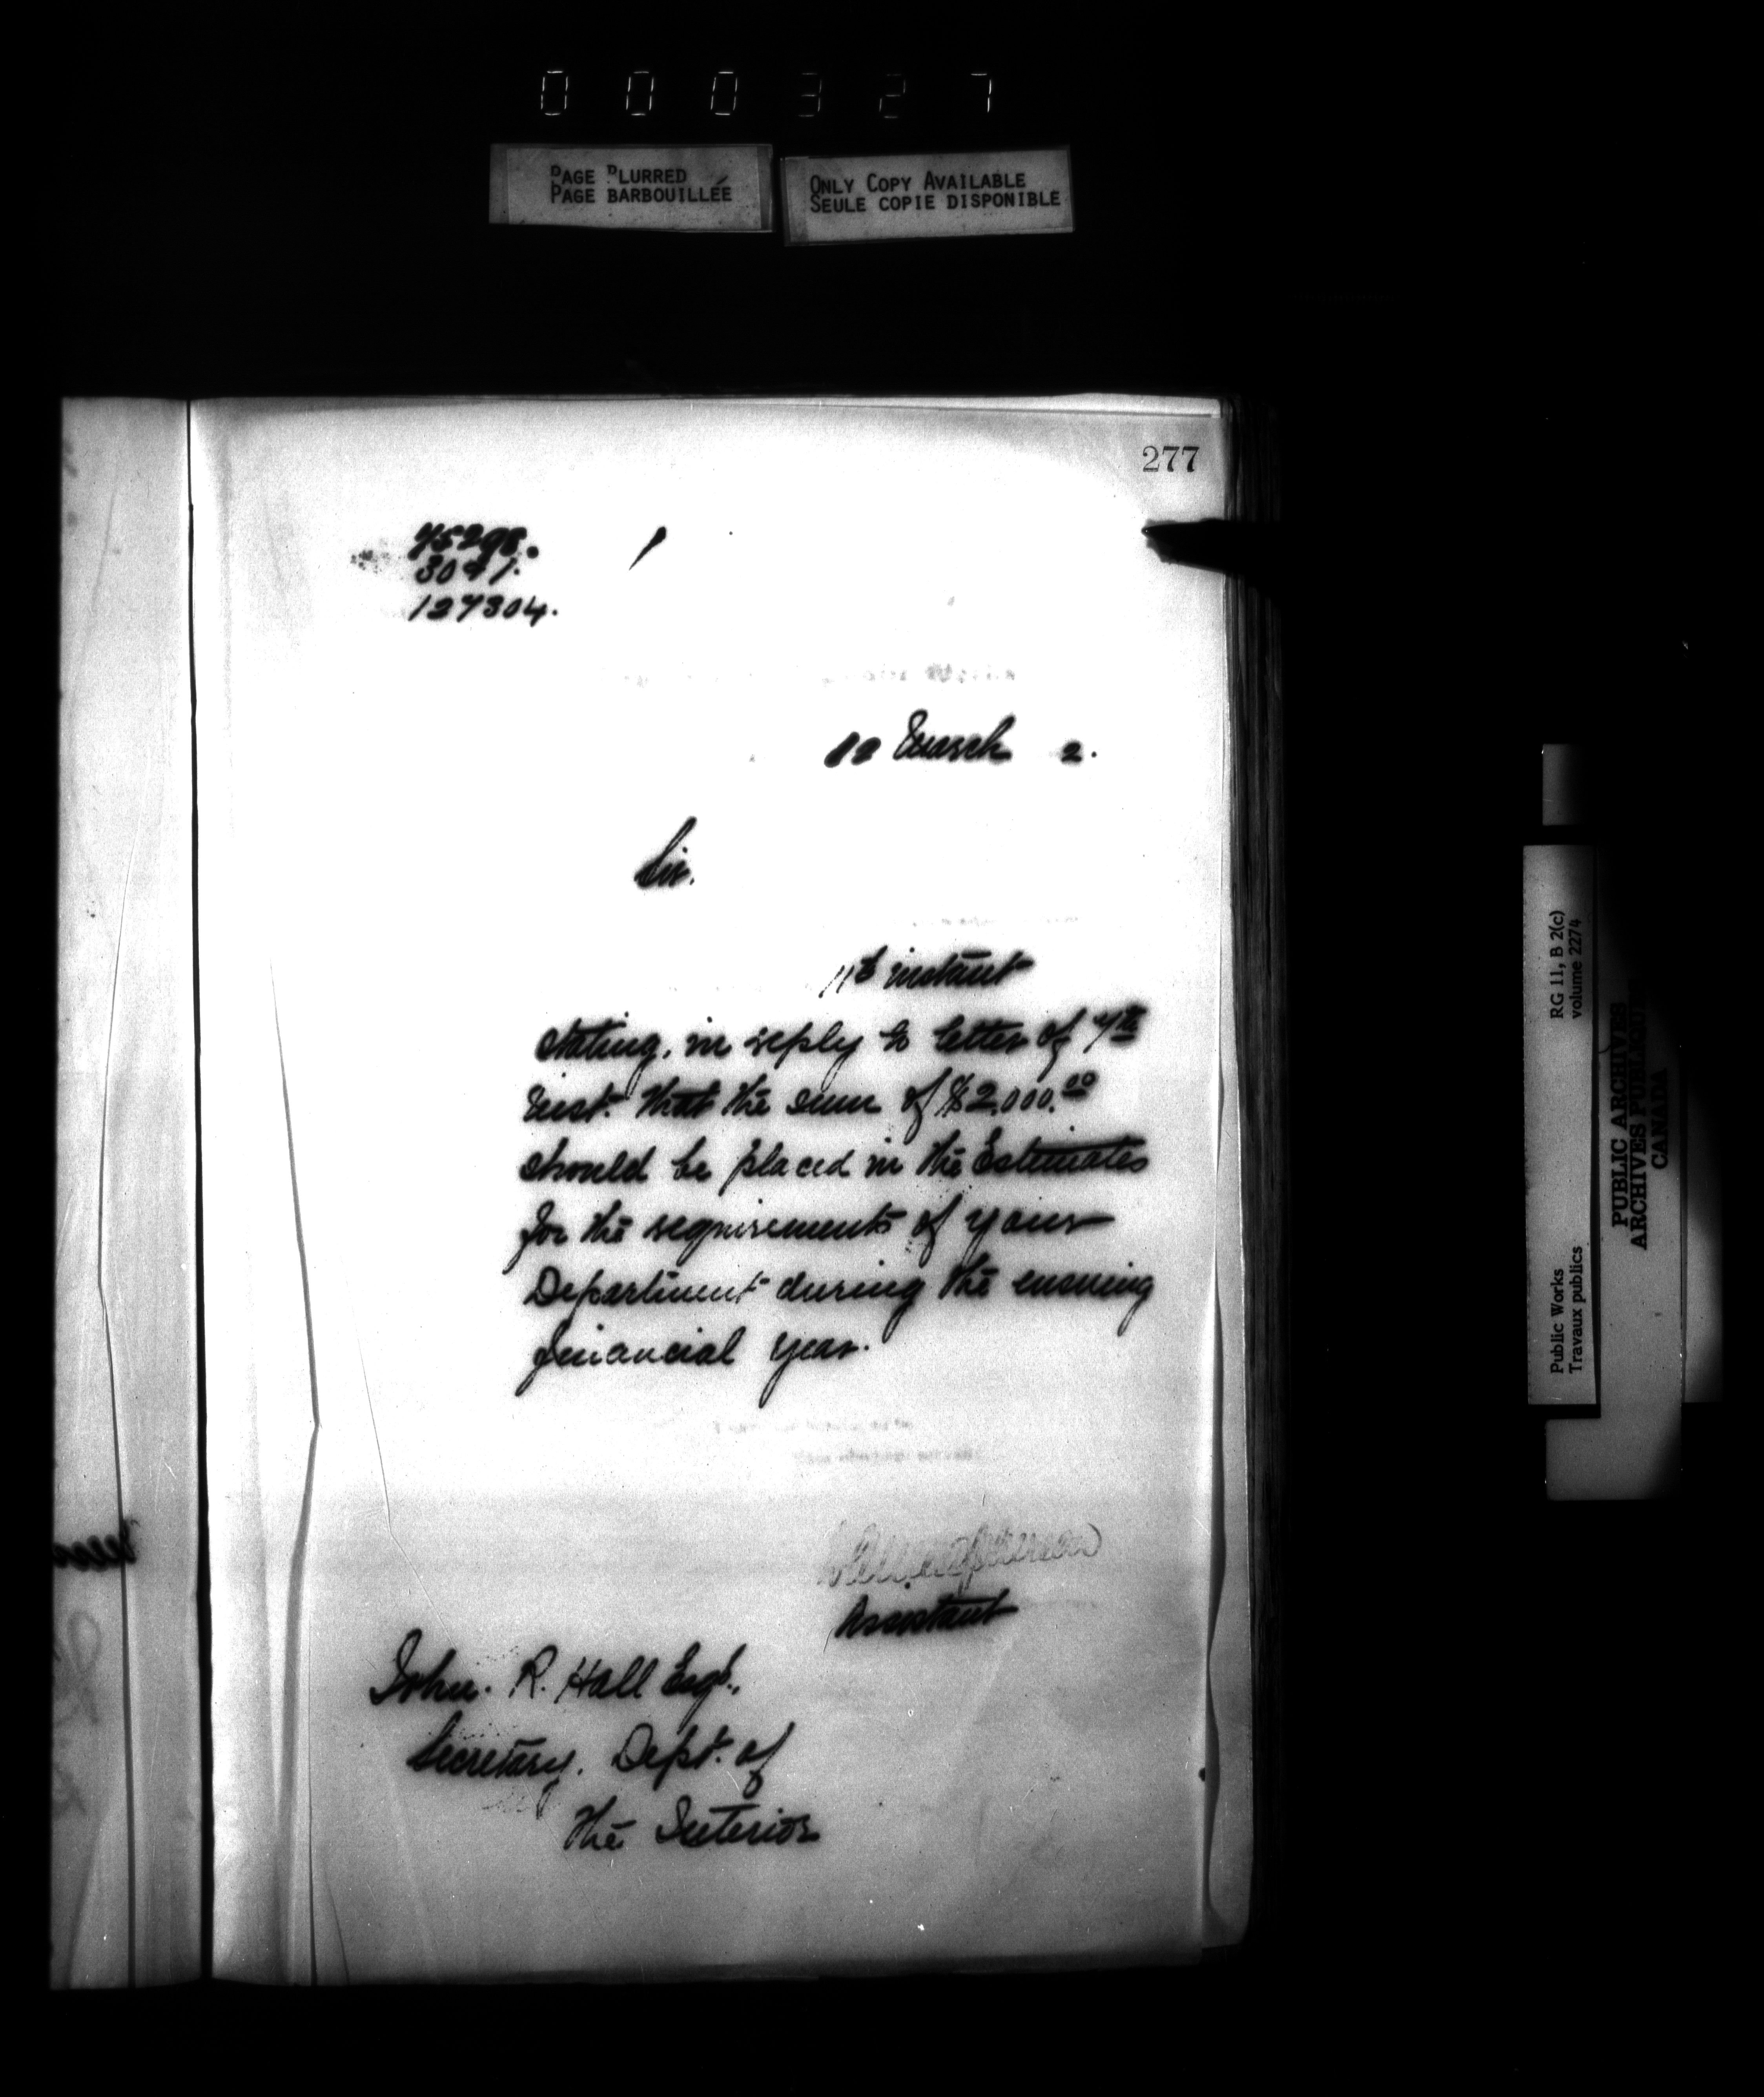 000327
PAGE BLURRED
PAGE BARBOUILLÉE
ONLY COPY AVAILABLE
SEULE COPIE DISPONIBLE
277
75298.
3041.
127304.
12 March 2.
Sir.
11th instant
stating, in reply to letter of 7th
Inst. that the sum of $2,000.00
should be placed in the Estimates
for the requirements of your
Department during the ensuing
financial year.
Assistant
John. R. Hall Esq.,
Secretary. Dept. of
the Interior
RG 11, B 2(c)
volume 2274
Public Works
Travaux publics
PUBLIC ARCHIVES
ARCHIVES PUBLIQUES
CANADA